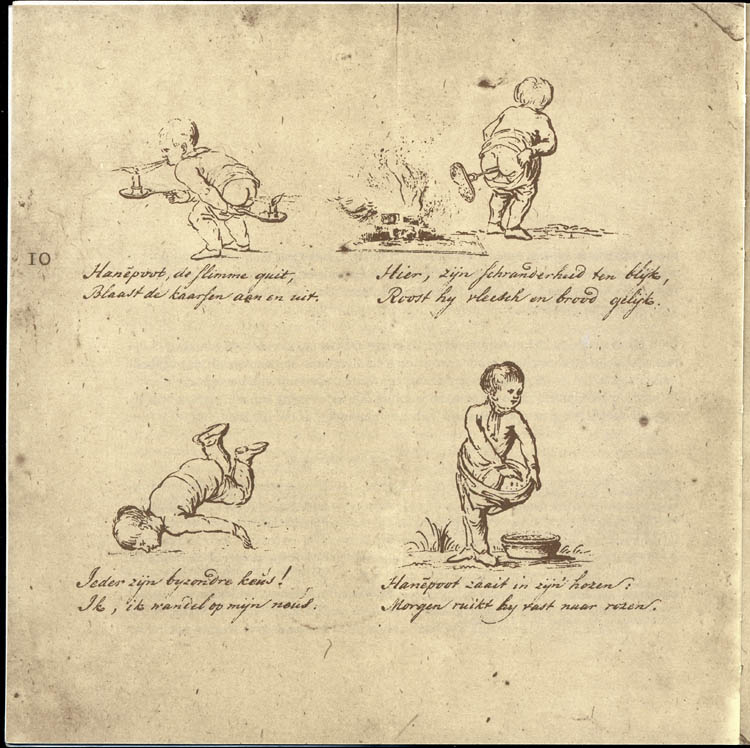 10
Hanepoot, de slimme guit,
Blaast de kaarsen aan en uit.
Hier, zijn schranderheid ten blijk,
Roost hy vleesch en brood gelijk.
Ieder zijn byzondre keus!
Ik, ik wandel op mijn neus.
Hanepoot zaait in zijn hozen:
Morgen ruikt hy vast naar rozen.